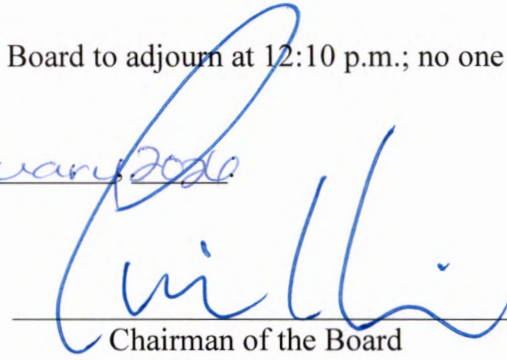 Board to adjourn at 12:10 p.m.; no one
uary, 2026.
Chairman of the Board